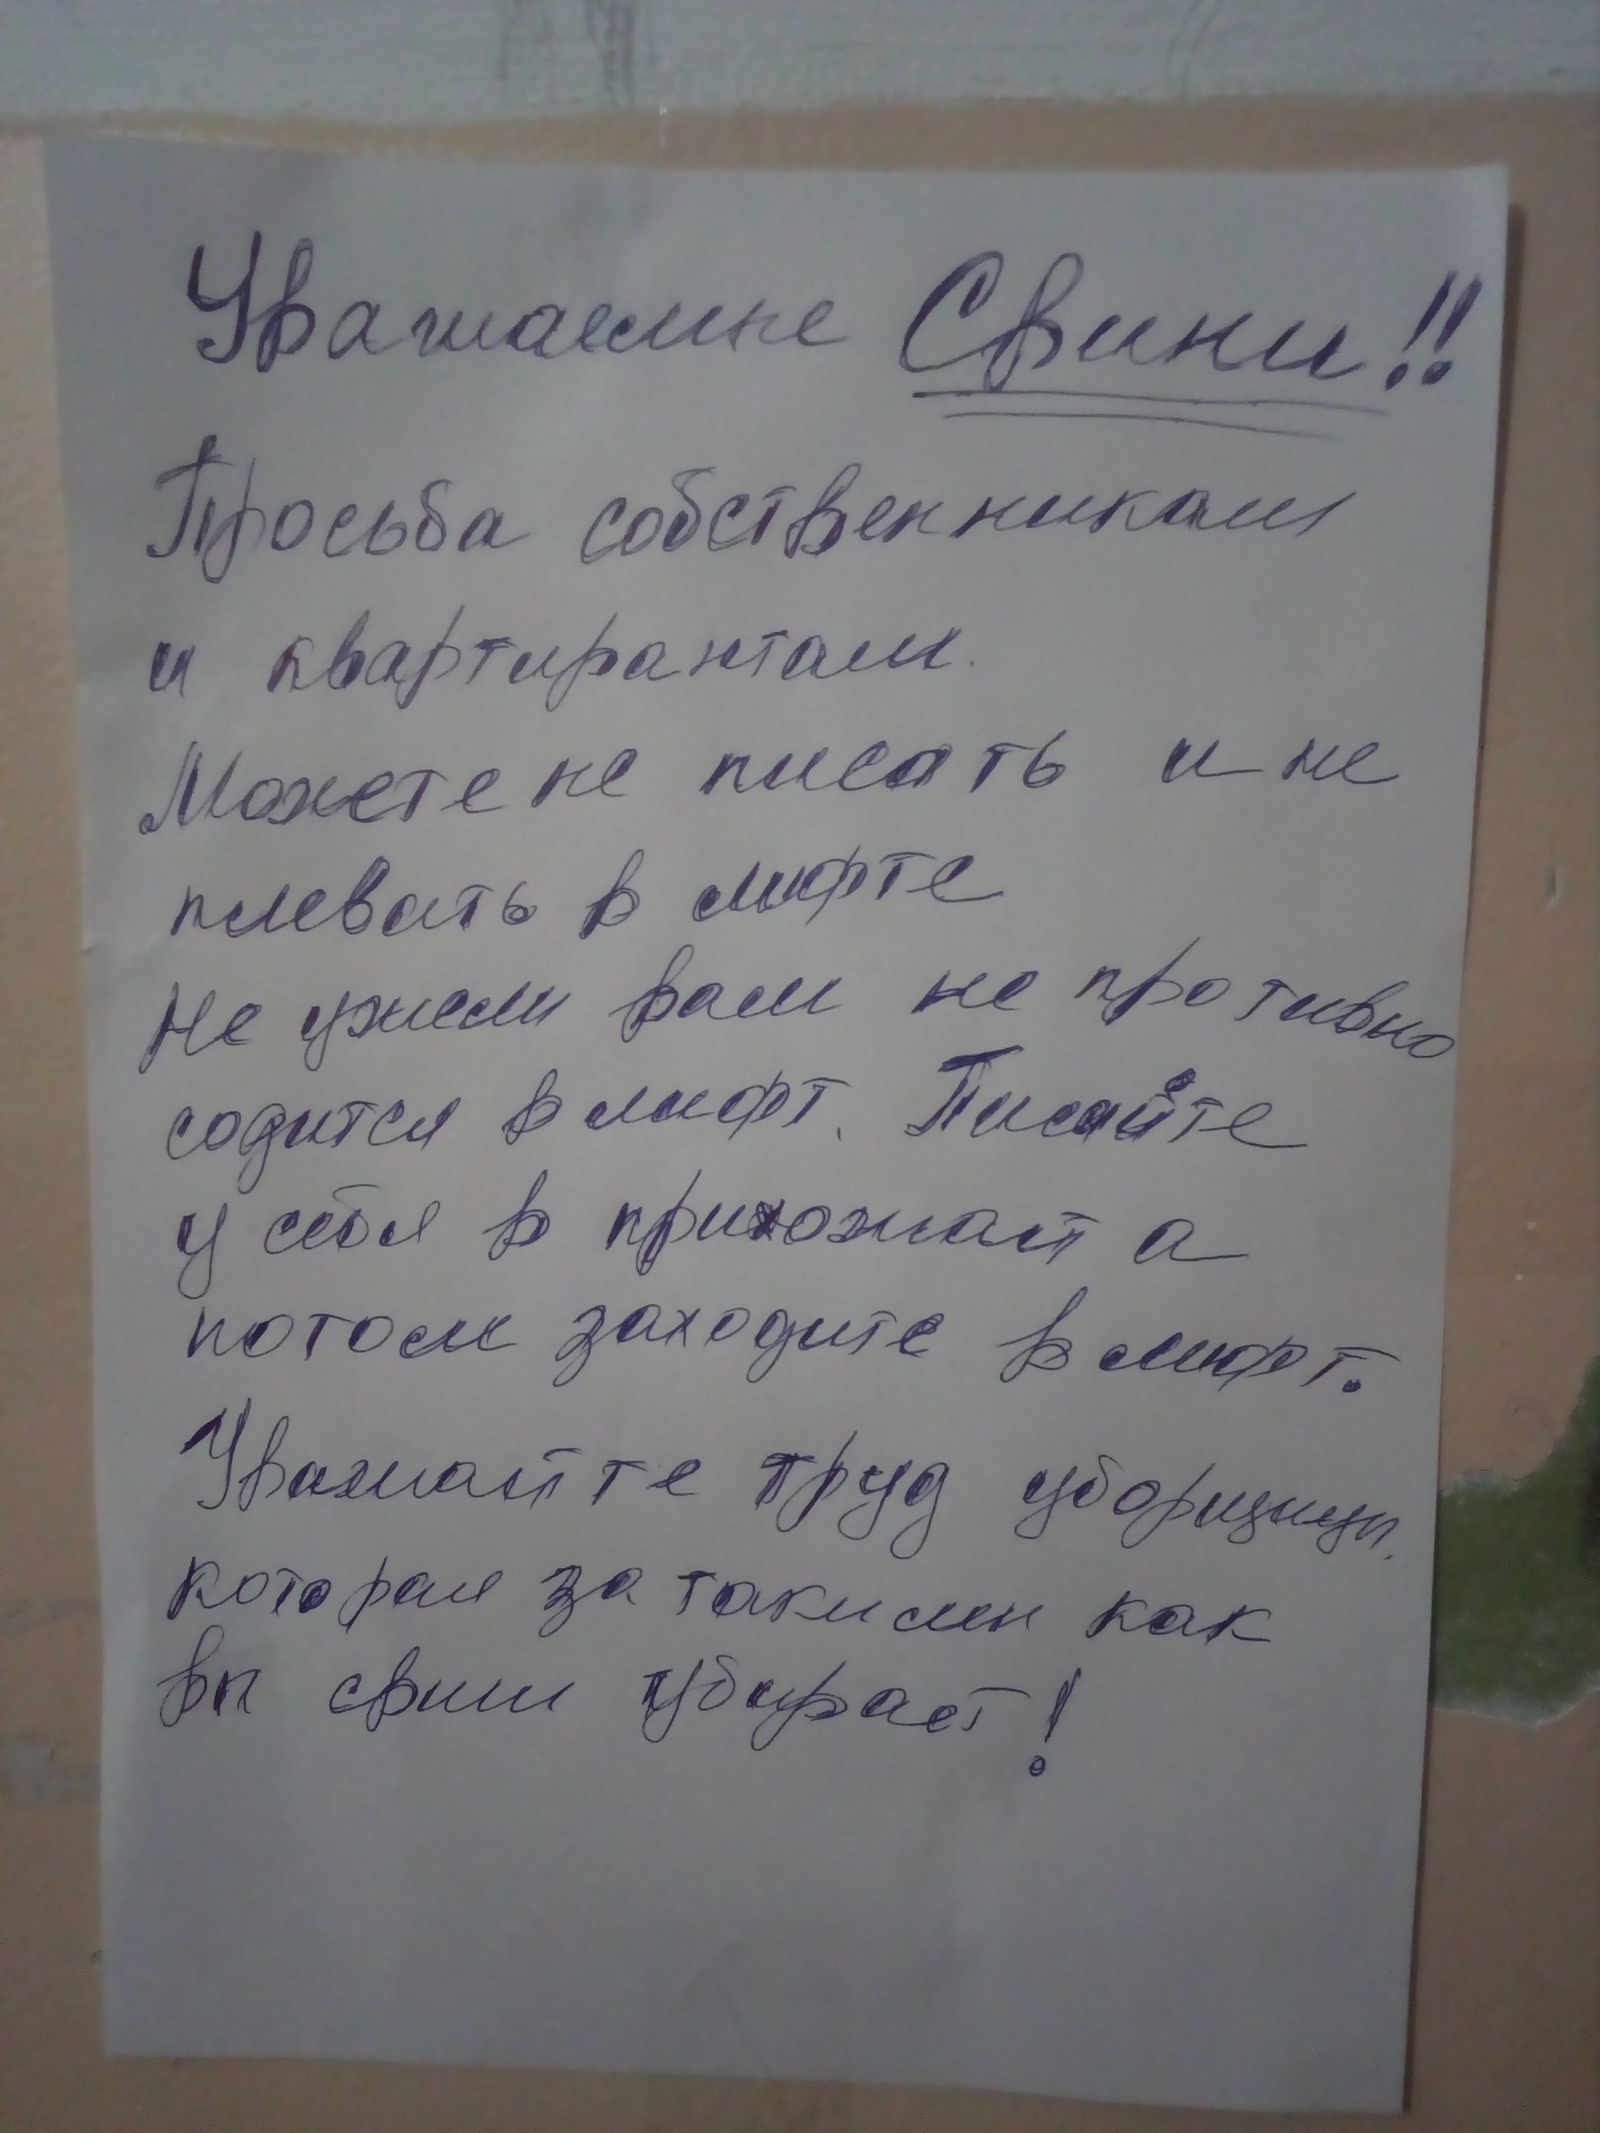 Уважаемые Свини!!
Просьба собственникам
и квартирантам.
Можете не писать и не
плевать в лифте
Не ужели вам не противно
содится в лифт. Писайте
у себя в прихожай а
потом заходите в лифт.
Уважайте труд уборщицы.
которая за такими как
вы свини убирает!